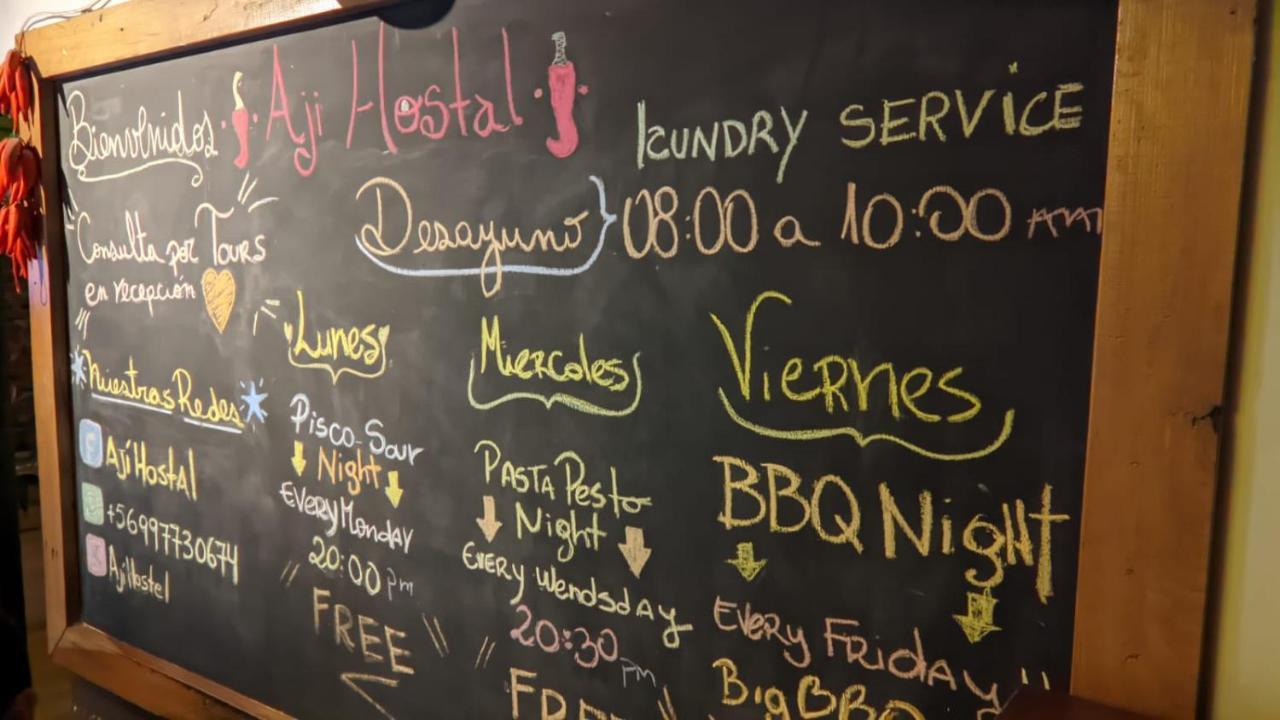 Bienvenidos Aji Hostal
LAUNDRY SERVICE
Desayuno 08:00 a 10:00 AM
Consulta por Tours
en recepción
Nuestras Redes
Ají Hostal
+56997730674
AjiHostel
Lunes
Pisco-Sour
Night
Every Monday
20:00 pm
FREE
Miercoles
PASTA Pesto
Night
Every Wendsday
20:30 pm
FREE
Viernes
BBQ Night
Every Friday
Big BBQ